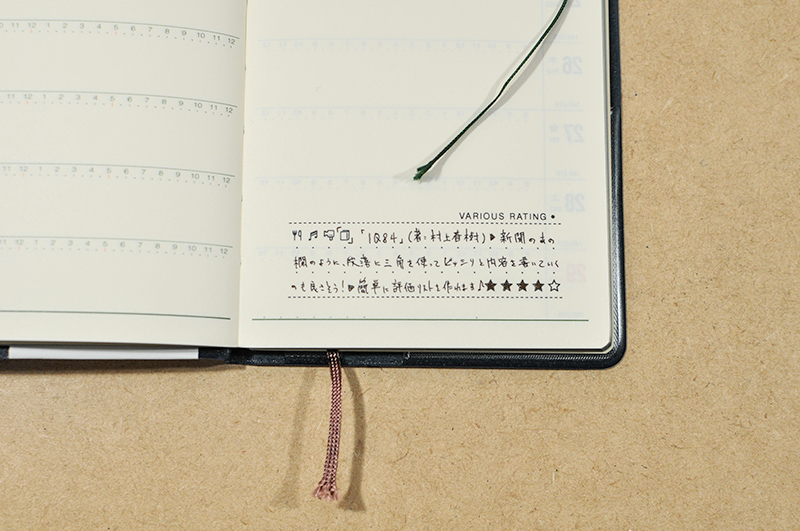 11 12 1 2 3 4 5 6 7 8 9 10 11 12
11 12 1 2 3 4 5 6 7 8 9 10 11 12
11 12 1 2 3 4 5 6 7 8 9 10 11 12
11 12 1 2 3 4 5 6 7 8 9 10 11 12
26
27
28
29
VARIOUS RATING ●
「1Q84」(著:村上春樹)▶新聞のあの
欄のように、段落に三角を使ってビッシリと内容を書いていく
のも良さそう!▶簡単に評価リストを作れます♪★★★★☆